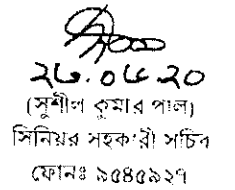 ২৬.০৮.২০
(সুশীল কুমার পাল)
সিনিয়র সহকারী সচিব
ফোনঃ ৯৫৪৫৯২৭